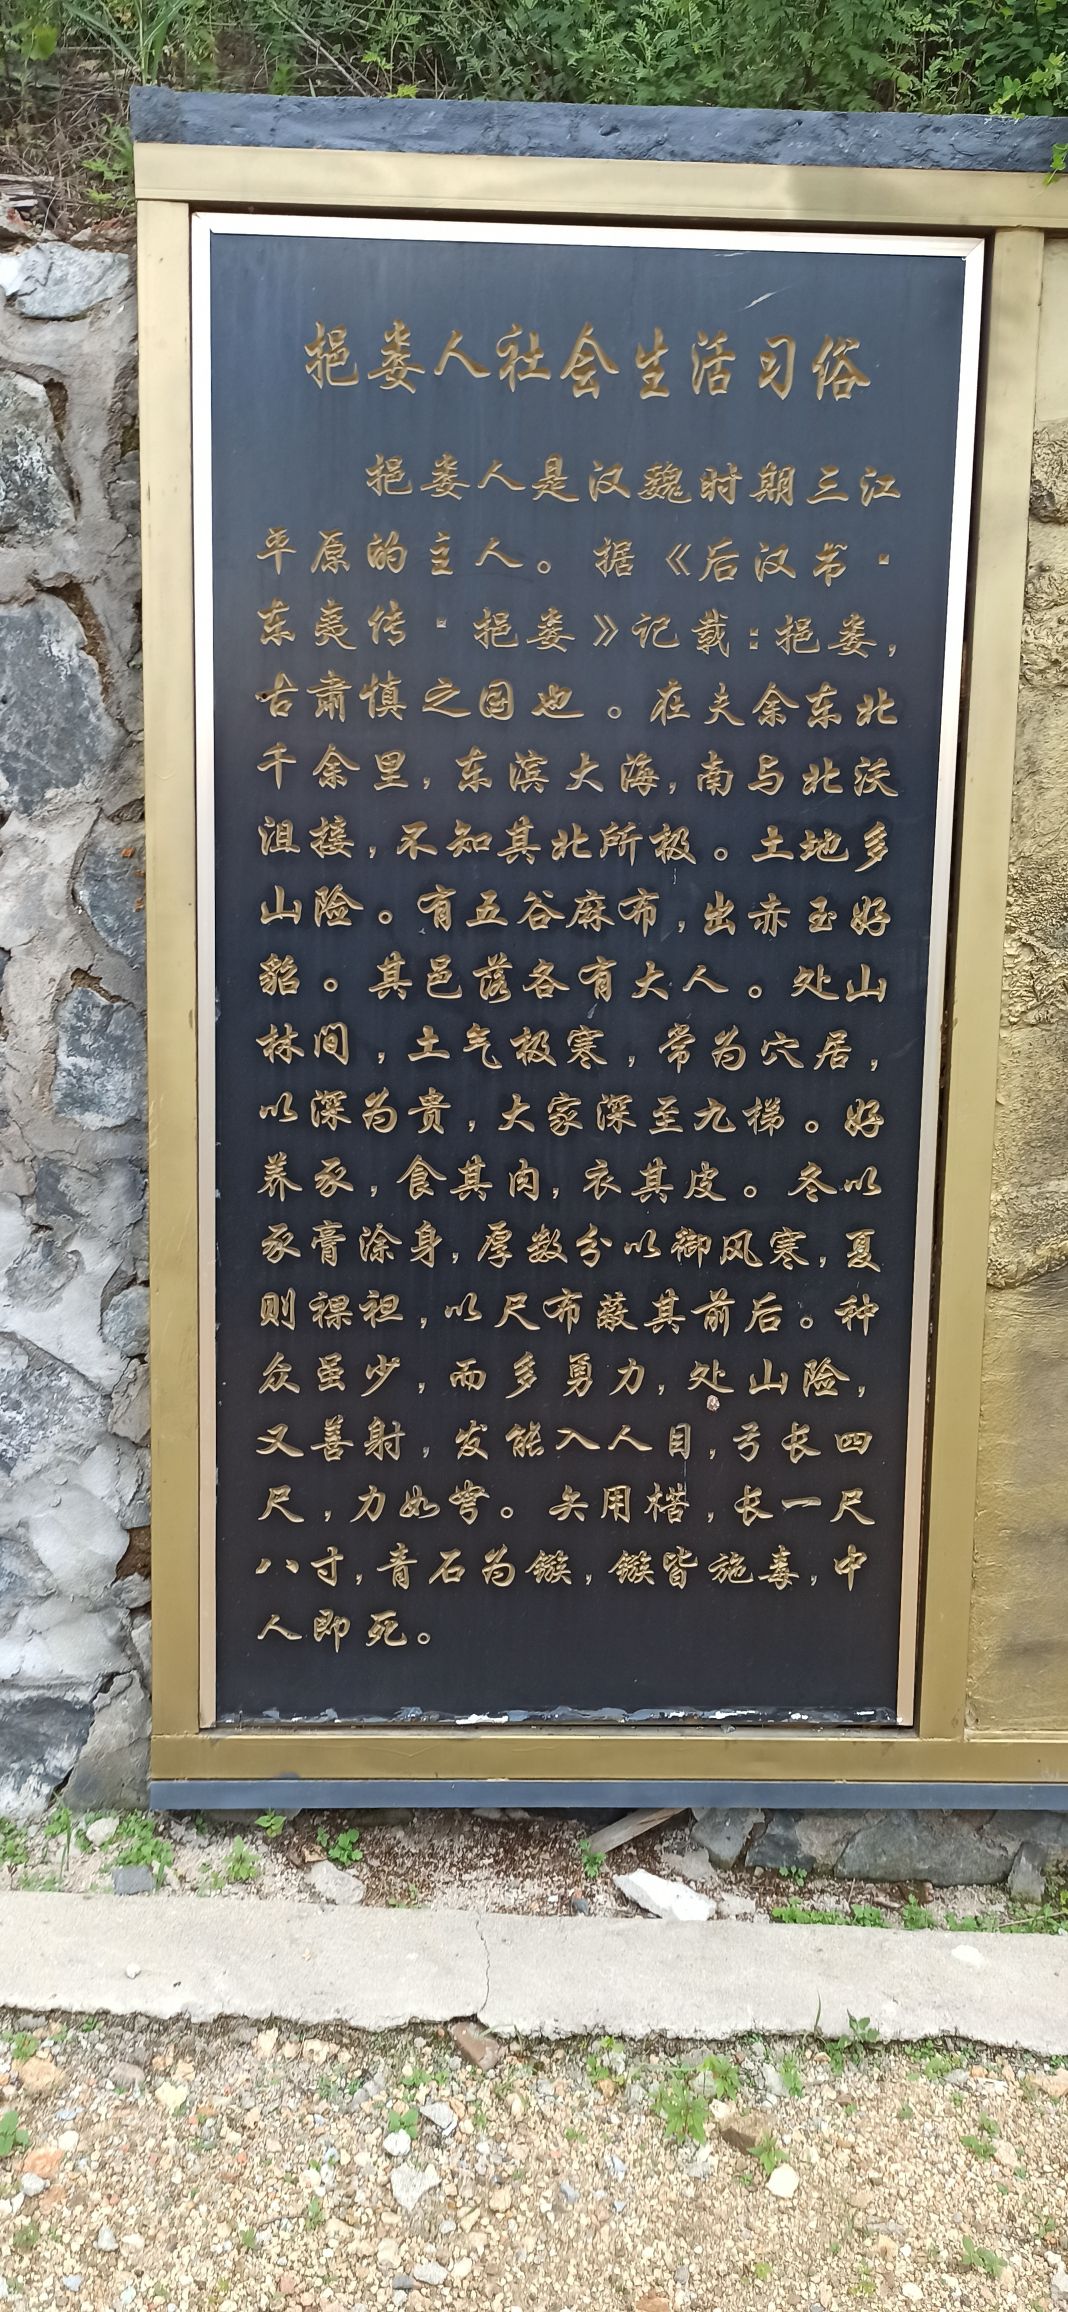 挹娄人社会生活习俗
挹娄人是汉魏时期三江
平原的主人。据《后汉书·
东夷传·挹娄》记载:挹娄,
古肃慎之国也。在夫余东北
千余里,东滨大海,南与北沃
沮接,不知其北所极。土地多
山险。有五谷麻布,出赤玉好
貂。其邑落各有大人。处山
林间,土气极寒,常为穴居,
以深为贵,大家深至九梯。好
养豕,食其肉,衣其皮。冬以
豕膏涂身,厚数分以御风寒,夏
则裸袒,以尺布蔽其前后。种
众虽少,而多勇力,处山险,
又善射,发能入人目,弓长四
尺,力如弩。矢用楛,长一尺
八寸,青石为镞,镞皆施毒,中
人即死。